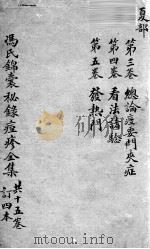 夏部
第三卷 總論痘要門夾症
第四卷 看法
第五卷 發熱門
馮氏錦囊秘錄痘疹全集
共十五卷
訂四本